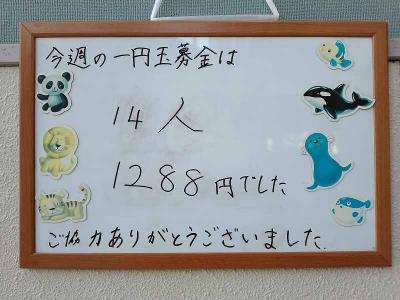 今週の一円玉募金は
14人
1288円でした
ご協力ありがとうございました.